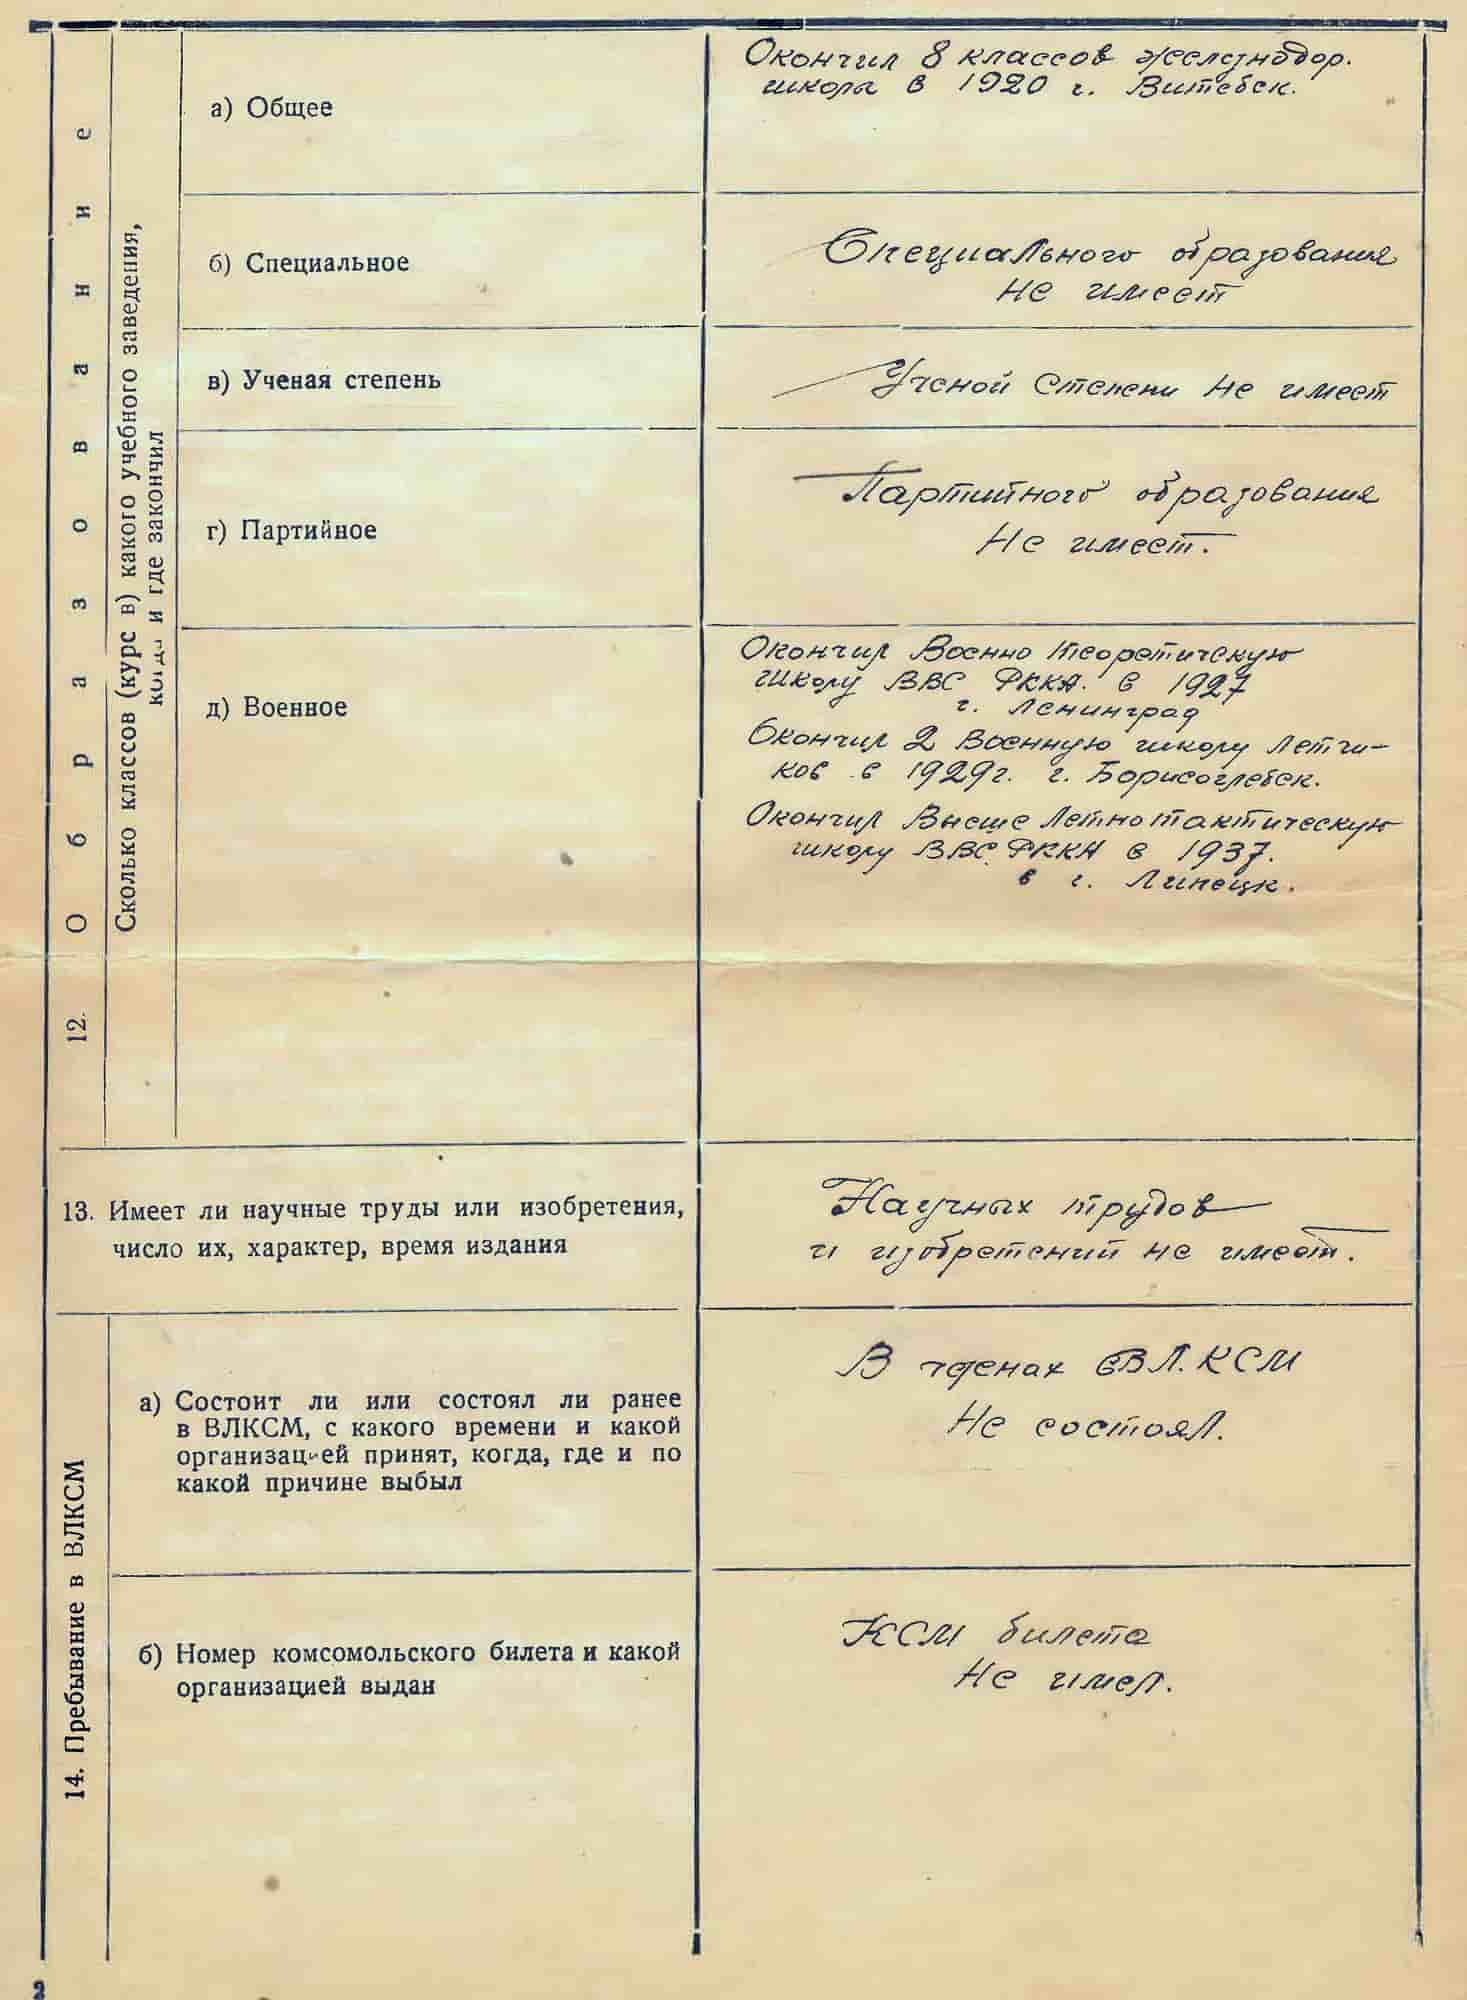 12. Образование
Сколько классов (курсов) какого учебного заведения,
когда и где закончил
а) Общее
Окончил 8 классов железнодор.
школа в 1920 г. Витебск.
б) Специальное
Специального образования
не имеет
в) Ученая степень
Ученой степени не имеет
г) Партийное
Партийного образования
Не имеет.
д) Военное
Окончил Военно теоретическую
школу ВВС РККА. в 1927
г. Ленинград
Окончил 2 Военную школу летчи-
ков в 1929г. г. Борисоглебск.
Окончил Высше Летно тактическую
школу ВВС РККА в 1937.
в г. Липецк.
13. Имеет ли научные труды или изобретения,
число их, характер, время издания
Научных трудов
и изобретений не имеет.
14. Пребывание в ВЛКСМ
а) Состоит ли или состоял ли ранее
в ВЛКСМ, с какого времени и какой
организацией принят, когда, где и по
какой причине выбыл
В членах ВЛКСМ
Не состоял.
б) Номер комсомольского билета и какой
организацией выдан
КСМ билета
Не имел.
2